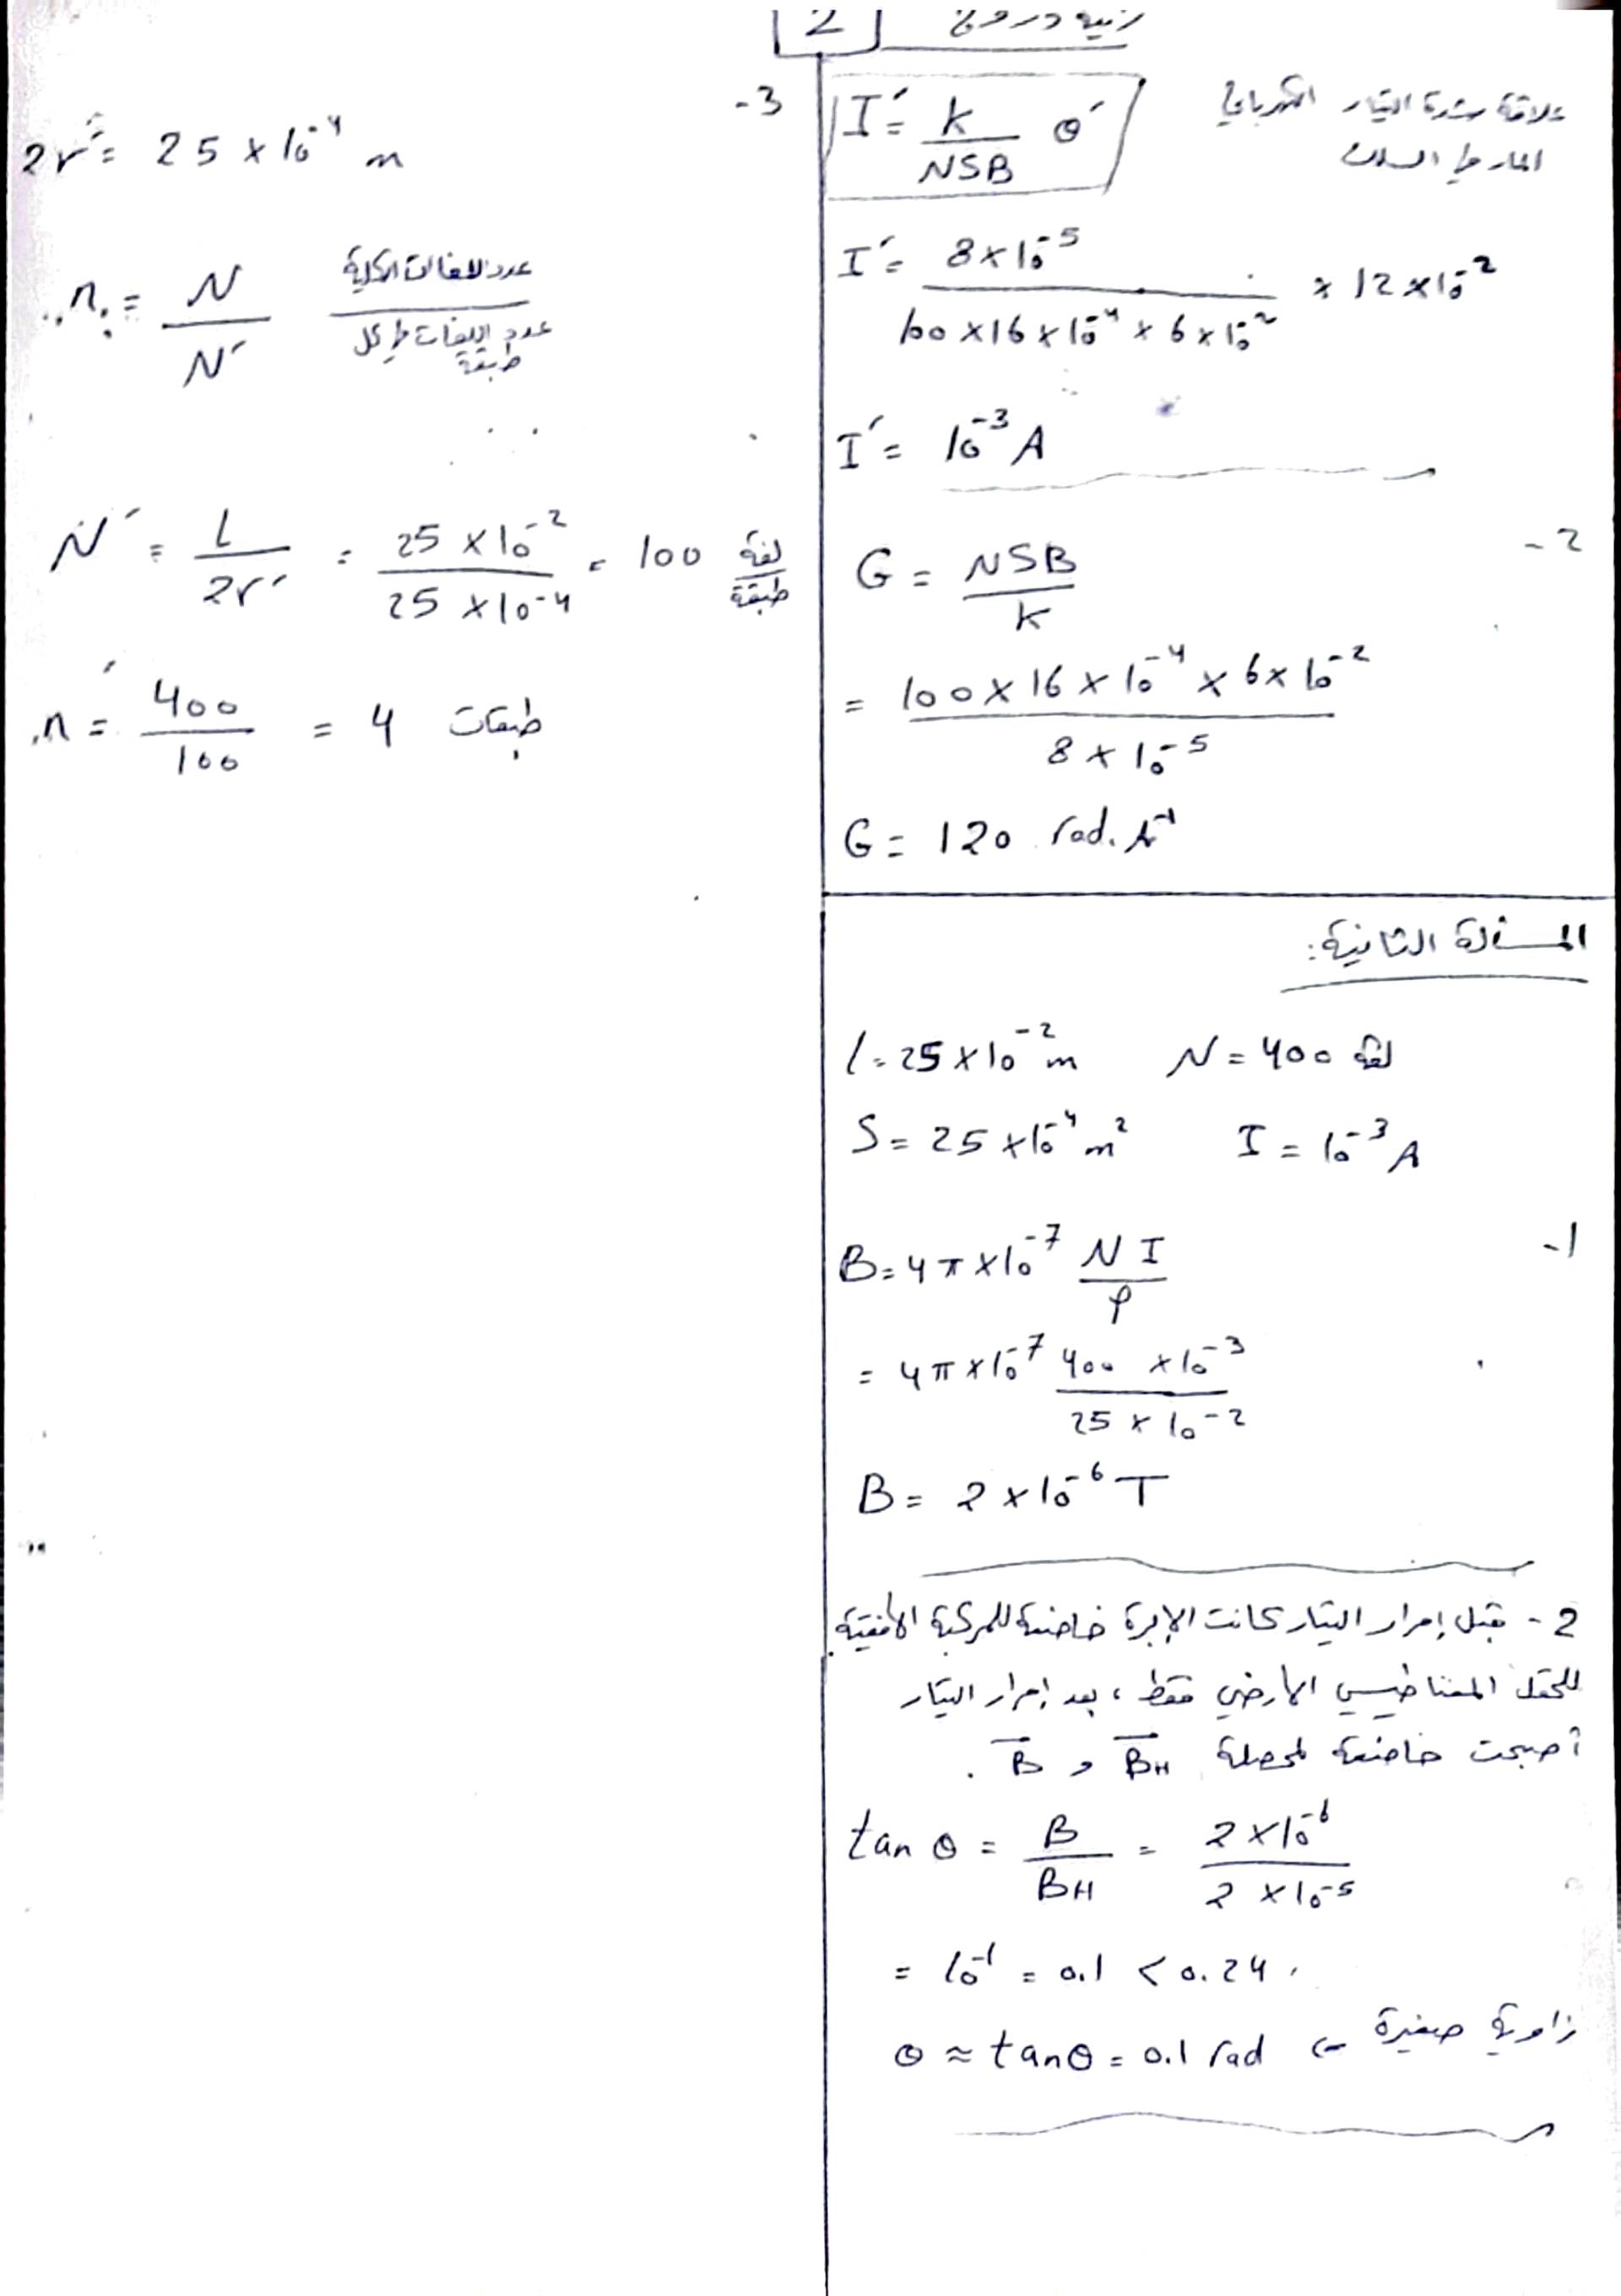 2
I′ = k/NSB θ′
علاقة شدة التيار الكهربائي
المار في السلك
I′ = 8×10⁻⁵ / 100×16×10⁻⁴×6×10⁻² × 12×10⁻²
I′ = 10⁻³ A
2-
G = NSB/k
= 100×16×10⁻⁴×6×10⁻² / 8×10⁻⁵
G = 120 rad.A⁻¹
المسألة الثانية:
l = 25×10⁻² m N = 400 لفة
S = 25×10⁻⁴ m² I = 10⁻³ A
1-
B = 4π×10⁻⁷ N I / l
= 4π×10⁻⁷ 400 ×10⁻³ / 25×10⁻²
B = 2×10⁻⁶ T
2- قبل إمرار التيار كانت الإبرة خاضعة للمركبة الأفقية
للحقل المغناطيسي الأرضي فقط، بعد إمرار التيار
أصبحت خاضعة لمحصلة B_H و B.
tan θ = B/B_H = 2×10⁻⁶ / 2×10⁻⁵
= 10⁻¹ = 0.1 < 0.24
زاوية صغيرة ⇐ θ ≈ tanθ = 0.1 rad
3-
2r′ = 25×10⁻⁴ m
n = N/N′ عدد اللفات الكلية / عدد اللفات في كل طبقة
N′ = l/2r′ = 25×10⁻² / 25×10⁻⁴ = 100 لفة/طبقة
n = 400/100 = 4 طبقات